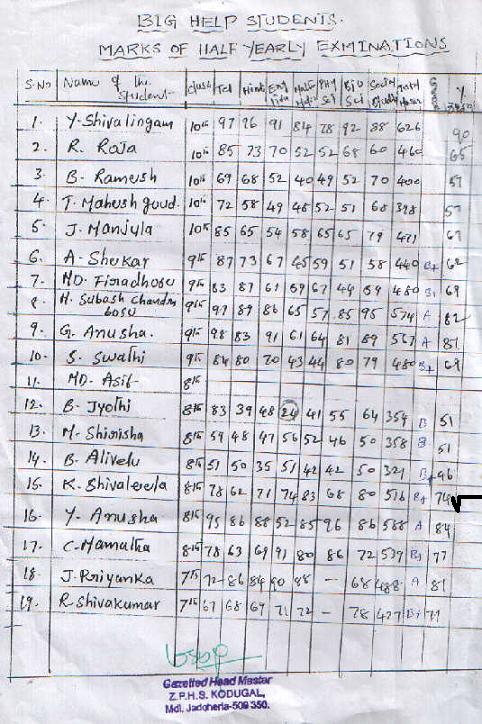 BIG HELP STUDENTS.
MARKS OF HALF YEARLY EXMINATIONS
S.No Name of the Student class Tel Hindi Eng Maths Phy Sci Bio Sci Social Study Total %
1. Y. Shivalingam 10th 97 76 91 84 78 92 88 626 90
2. R. Raja 10th 85 73 70 52 52 68 60 460 65
3. B. Ramesh 10th 69 68 52 40 49 52 70 400 57
4. T. Mahesh goud. 10th 72 58 49 48 52 51 68 398 57
5. J. Manjula 10th 85 65 54 58 65 65 79 471 67
6. A. Shekar 9th 87 73 67 45 59 51 58 440 B+ 62
7. MD. 9th 83 87 61 67 480 B+ 69
8. H. Subash Chandra bosu 9th 97 89 86 65 57 85 95 574 A 82
9. G. Anusha. 9th 98 83 91 61 64 81 89 567 A 81
10. S. Swathi 9th 84 80 70 43 44 80 79 480 B+ 69
11. MD. Asif 8th
12. B. Jyothi 8th 83 39 48 24 41 55 64 354 B 51
13. M. Shirisha 8th 59 48 47 56 52 46 50 358 B 51
14. B. Alivelu 8th 51 50 35 51 42 42 50 321 B+ 46
15. K. Shivaleela 8th 78 62 71 74 83 68 80 516 B+ 74
16. Y. Anusha 8th 95 86 88 52 85 96 86 588 A 84
17. C. Mamatha 8th 78 63 69 91 80 86 72 539 B+ 77
18. J. Priyanka 7th 72 86 84 90 88 - 68 488 A 81
19. R. Shivakumar 7th 67 68 69 71 72 - 78 427 B+ 71
Gazetted Head Master
Z.P.H.S. KODUGAL,
Mdl. Jadcherla-509 350.